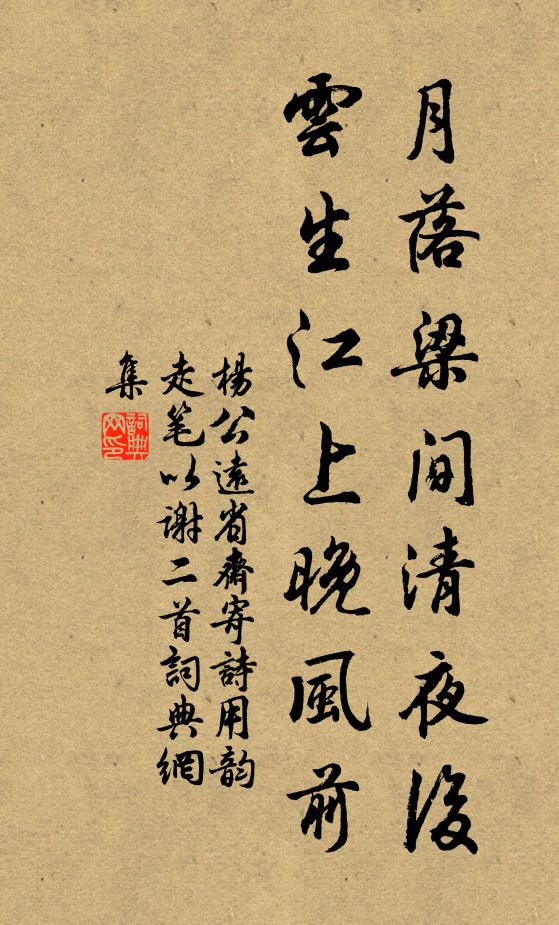 月落梁間清夜後
雲生江上晚風前
楊公遠省齋寄詩用韵
走笔以謝二首詞典網
集
詞典
网印